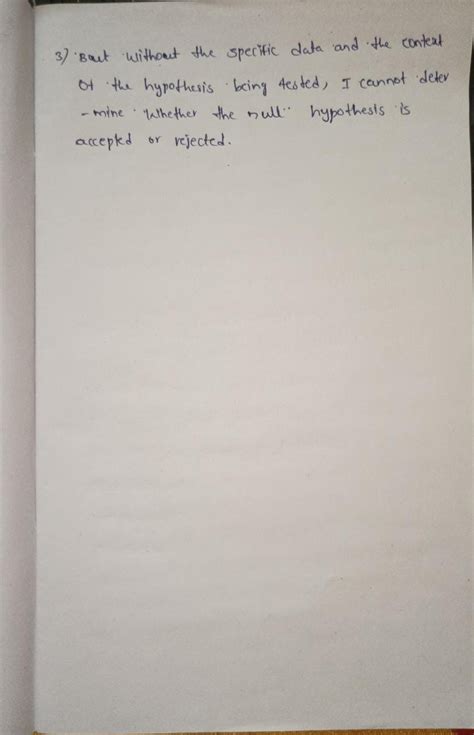 3) But without the specific data and the context
of the hypothesis being tested, I cannot deter
- mine whether the null hypothesis is
accepted or rejected.